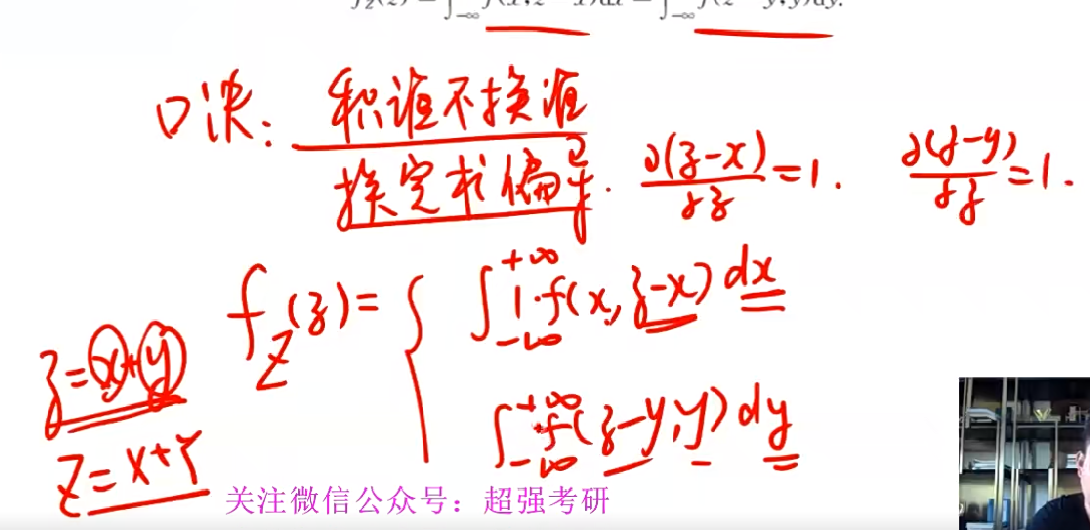 f_Z(z) = ∫_{-∞} f(x, z-x)dx = ∫_{-∞} f(z-y, y)dy.
口诀: 积谁不换谁
换完求偏导. ∂(z-x)/∂z = 1. ∂(z-y)/∂z = 1.
f_Z(z) = { ∫_{-∞}^{+∞} 1·f(x, z-x) dx
z=x+y
∫_{-∞}^{+∞} f(z-y, y) dy
Z=X+Y
关注微信公众号：超强考研